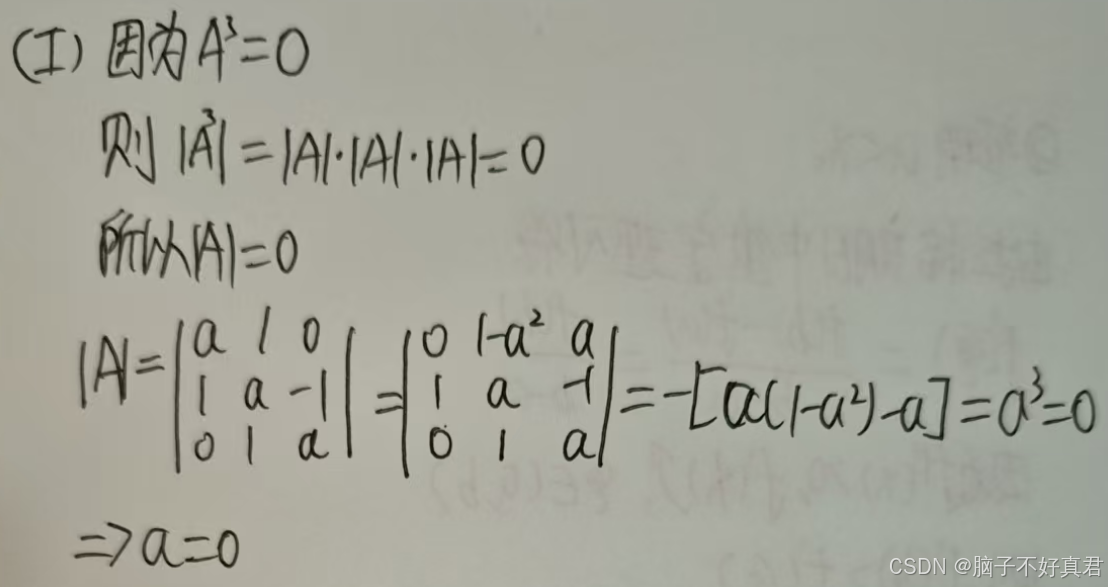 (I) 因为A³=0
则 |A³|=|A|·|A|·|A|=0
所以|A|=0
|A|=|a 1 0; 1 a -1; 0 1 a|=|0 1-a² a; 1 a -1; 0 1 a|=-[a(1-a²)-a]=a³=0
=>a=0
CSDN @脑子不好真君